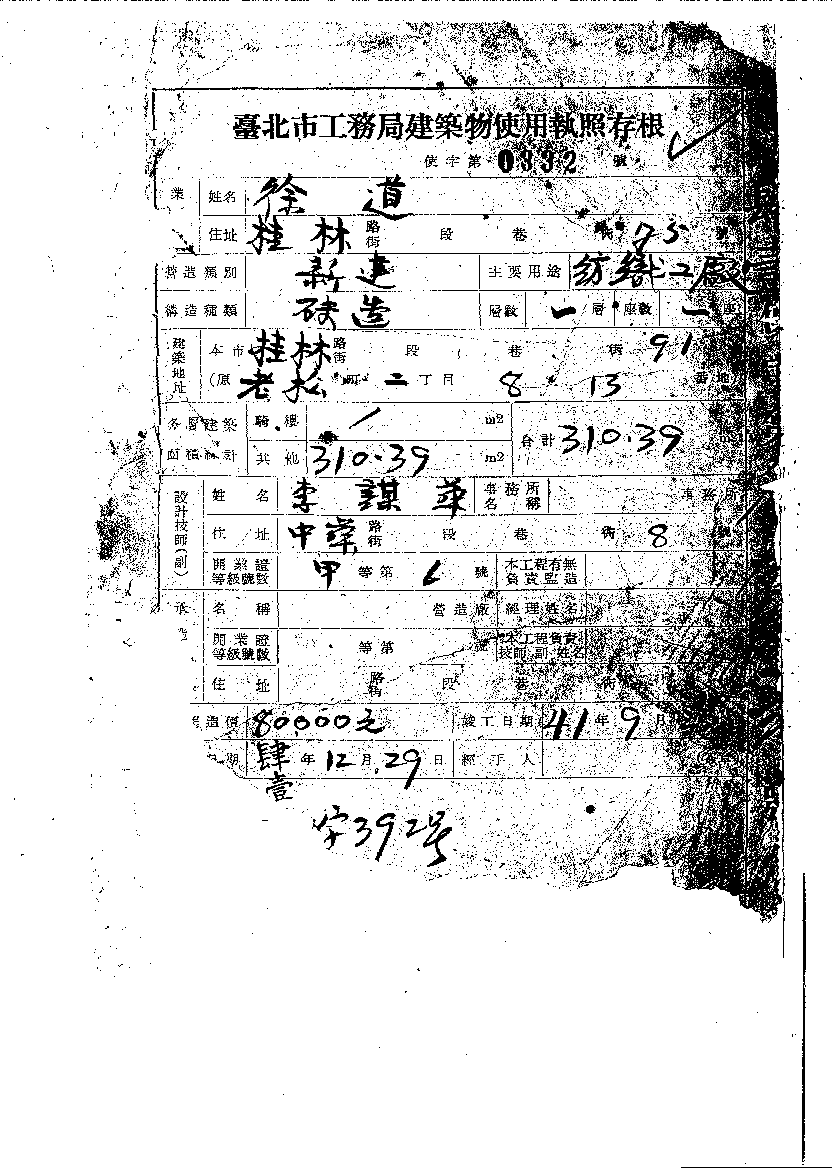 臺北市工務局建築物使用執照存根
使字第 0332 號
業 姓名 徐 道
住址 桂林 路街 段 巷 75 號
營造類別 新建 主要用途 紡織工廠
構造種類 磚造 層數 一層 座數 一座
建築地址 本市 桂林 路街 段 巷 91
(原 老松町 二丁目 8 13 番地
各層建築面積總計 騎樓 / m2 合計 310.39
其他 310.39 m2
設計技師(副) 姓名 李謀華 事務所名稱 事務所
住址 中華 路街 段 巷 8 號
開業證等級號數 甲 等第 6 號 本工程有無負責監造
名稱 營造廠 經理姓名
開業證等級號數 等第 號 本工程負責技師副姓名
住址 路街 段 巷
造價 80,000元 竣工日期 41年9月
期 肆壹年12月29日 經手人
字392號